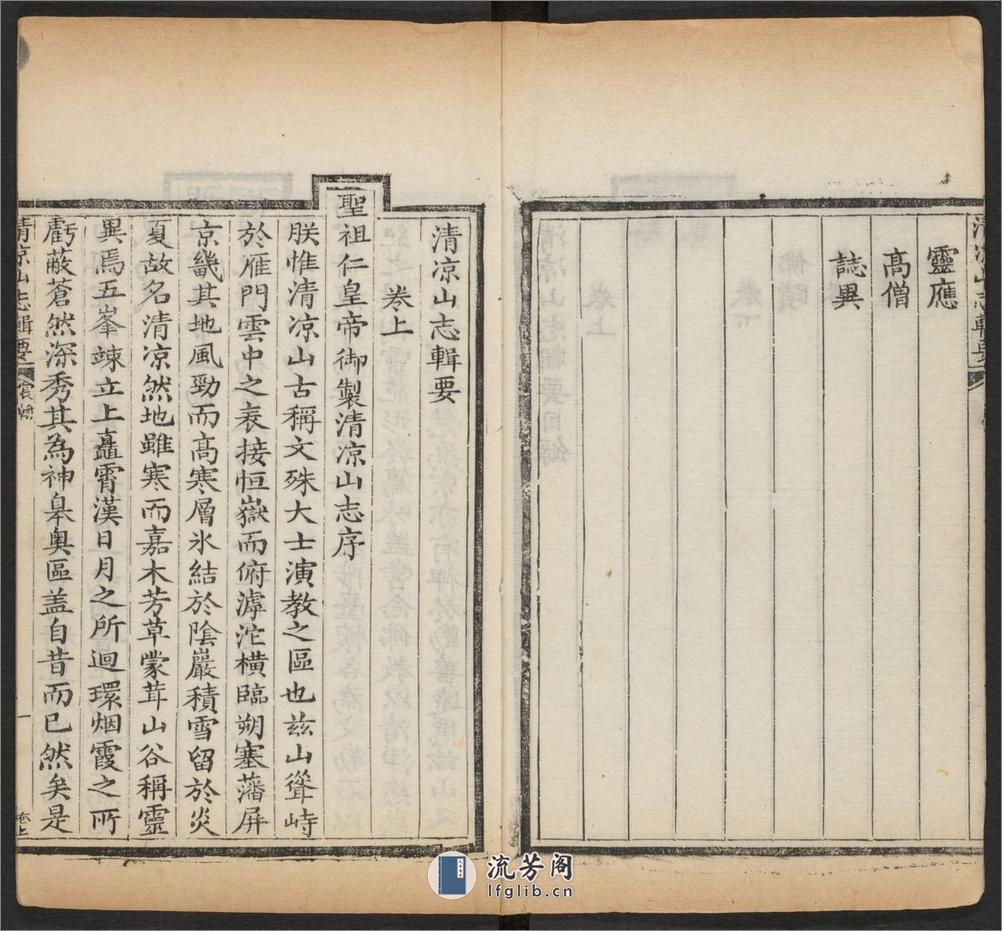 靈應
高僧
誌異
清涼山志輯要
卷上
聖祖仁皇帝御製清凉山志序
朕惟清凉山古稱文殊大士演教之區也茲山聳峙
於雁門雲中之表接恒嶽而俯滹沱橫臨朔塞藩屏
京畿其地風勁而高寒層氷結於陰巖積雪留於炎
夏故名清凉然地雖寒而嘉木芳草蒙茸山谷稱靈
異焉五峯竦立上矗霄漢日月之所迴環烟霞之所
虧蔽蒼然深秀其為神臯奥區盖自昔而已然矣是
清凉山志輯要
一
流芳阁
lfglib.cn